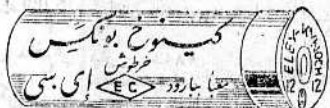 كينوخ بونكس
خرطوش
معبا ببارود EC إي سي
ELEY KYNOCH
12 12